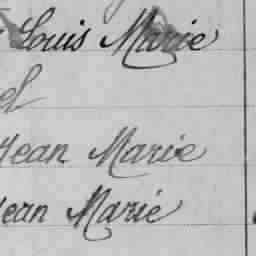 Louis Marie
el
Jean Marie
Jean Marie